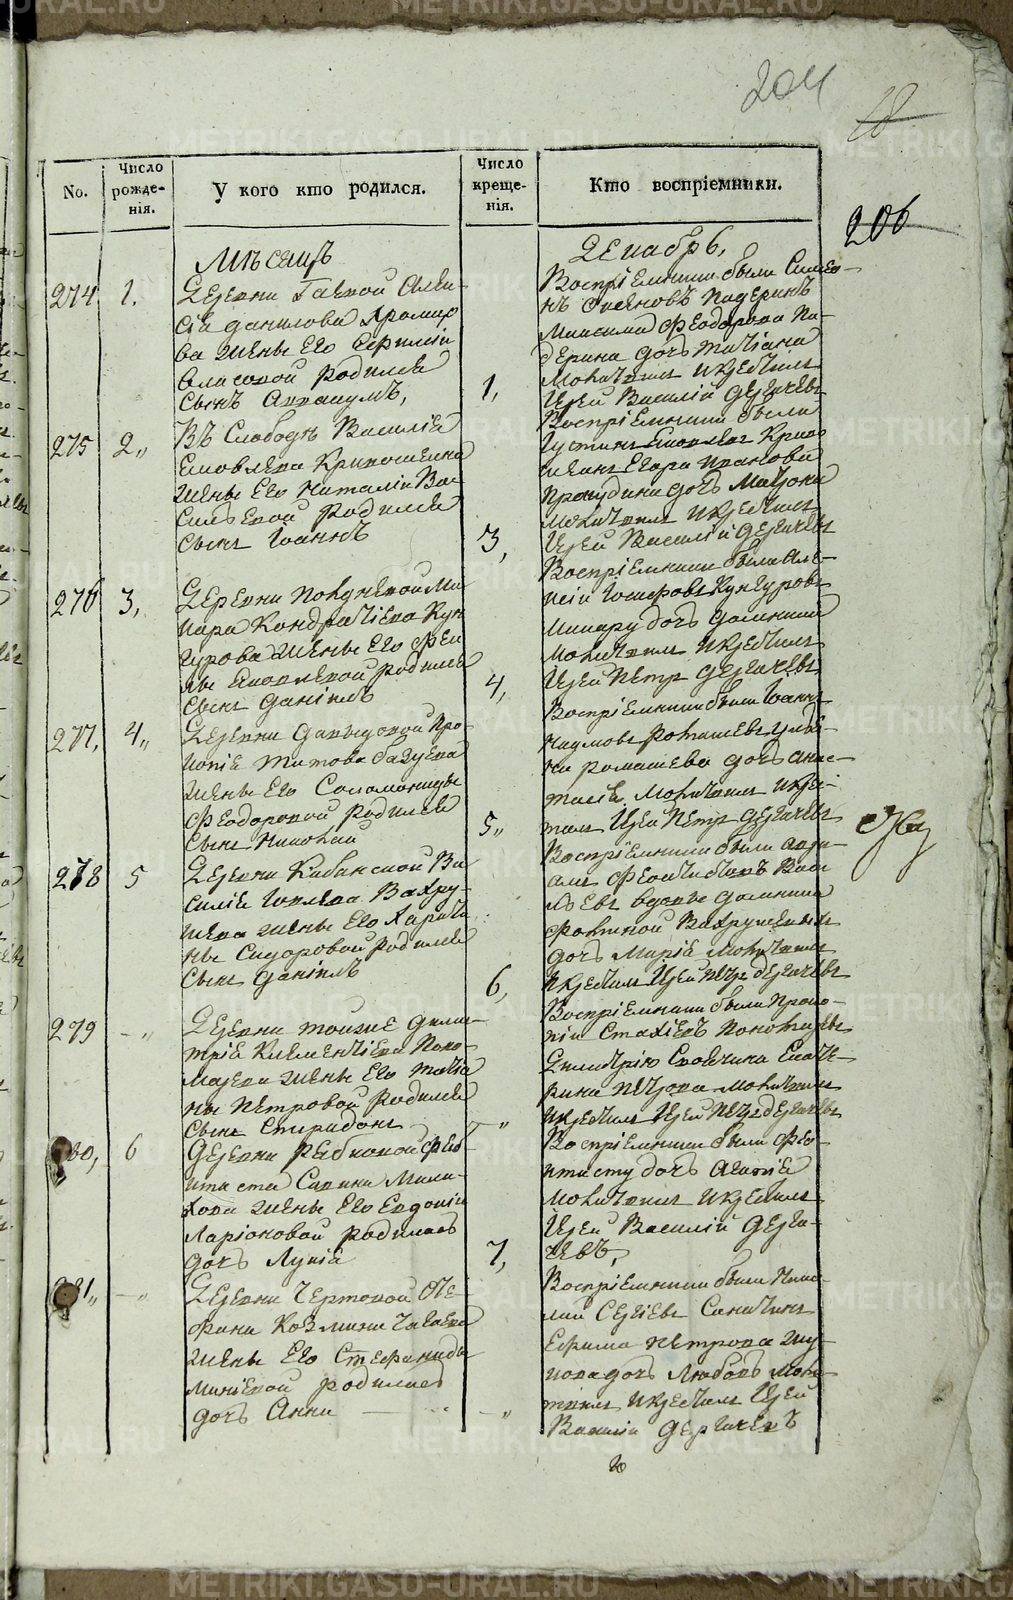 204
18
206
No.
Число рожде- нія.
У кого кто родился.
Число креще- нія.
Кто воспріемники.
Мѣсяцъ
Декабрь,
274
1.
Деревни Гаевой Алек-
сія данилова Храмцо
ва жены Его
Власовой родился
сынъ
1,
Воспріемники были Симео-
нъ Падеринъ
Максима Феодорова Па-
дерина дочь Татіана
молитвилъ и крестилъ
Іерей Василій Дергачевъ
275
2,,
Въ Слободѣ Василія
Яковлева Кривошеина
жены Его Наталіи Ва-
сильевой родился
сынъ Іоаннъ
3,
Воспріемники были
Іустинъ Яковлевъ Криво
шеинъ Егора Иванова
дочь Матрона
молитвилъ и крестилъ
Іерей Василій Дергачевъ
276
3,
Деревни Ма-
кара Кондратіева Кун
гурова жены Его Фек
лы Яковлевой родился
сынъ Даніилъ
4,
Воспріемники были Але-
ксій Іосифовъ Кунгуровъ
Макару дочь Домникія
молитвилъ и крестилъ
Іерей Петръ Дергачевъ
277,
4,,
Деревни Давыдовой Про-
копія Титова
жены Его Соломониды
Феодоровой родился
сынъ Николай
5,,
Воспріемники были Іоаннъ
Наумовъ
Ромашева дочь Анас-
тасія молитвилъ и крес-
тилъ Іерей Петръ Дергачевъ
278
5
Деревни Кабанской Ва
силія Іовлева Вахру-
шева жены Его Харити
ны Сидоровой родился
сынъ Даніилъ
6,
Воспріемники были
вдовы Домникіи
Фотиной Вахрушевыхъ
дочь Марія молитвилъ
и крестилъ Іерей Петръ Дергачевъ
279
-,,
Деревни тойже Дими-
трія Климентіева Поно-
марева жены Его Татіа
ны Петровой родился
сынъ Спиридонъ
-,,
Воспріемники были Проко-
пій Стахіевъ Пономаревъ
Димитрію Екате-
рина Петрова молитвилъ
и крестилъ Іерей Петръ Дергачевъ
280,
6
Деревни Рыбниковой Фео
ктиста Савина Мала-
хова жены Его Евдокіи
Ларіоновой родилась
дочь Лукія
7,
Воспріемники были Фео-
ктисту дочь Агафія
молитвилъ и крестилъ
Іерей Василій Дерга-
чевъ,
281,,
-,,
Деревни Чертовой
Козмина
жены Его Стефаниды
Миніевой родилась
дочь Анна
-,,
Воспріемники были Нико-
лай Сергіевъ
Ефима Петрова Жу-
кова дочь Любовь моли-
твилъ и крестилъ Іерей
Василій Дергачевъ
METRIKI.GASO-URAL.RU